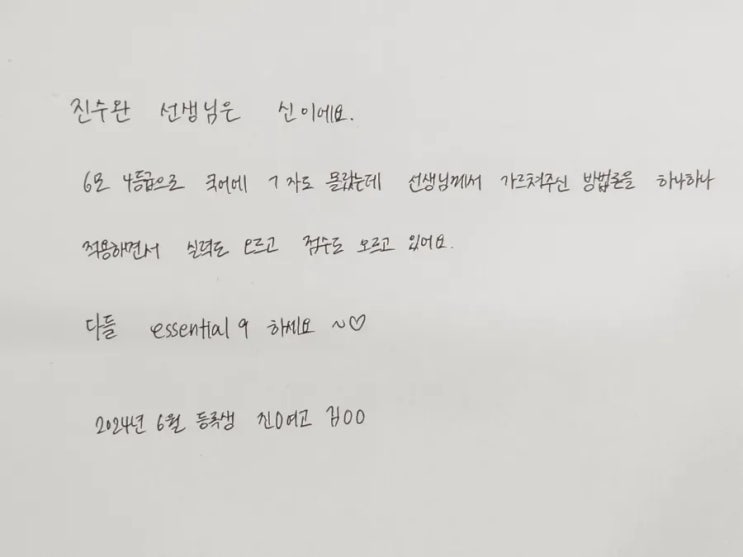 진수완 선생님은 신이에요.
6모 4등급으로 국어에 ㄱ자도 몰랐는데 선생님께서 가르쳐주신 방법론을 하나하나
적용하면서 실력도 오르고 점수도 오르고 있어요.
다들 essential 9 하세요 ~♡
2024년 6월 등록생 진O여고 김OO